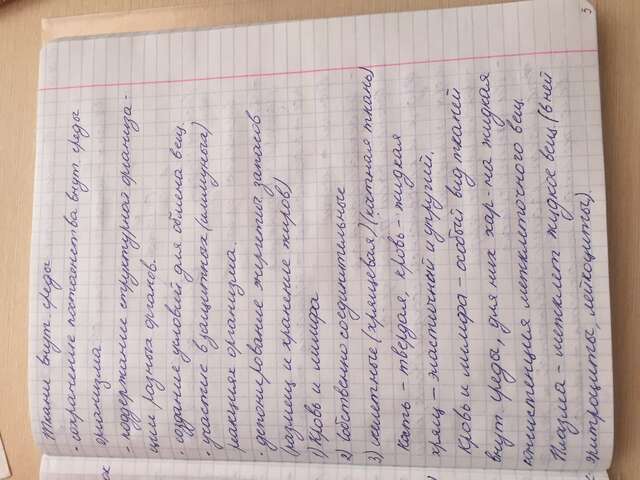 Ткани внут. среды
- сохранение постоенства внут. среды
организма
- поддержание структурной организа-
ции разных органов.
- создание условий для обмена вещ.
- участие в защитных (имуных)
реакциях организма.
- депонирование энергетич запасов
(размещ и хранение жиров)
1) Кровь и лимфа
2) Собственно соединительные
3) скелетные (хрящевая) (костная ткань)
Кость - твердая, кровь - жидкая
хрящ - эластичный и упругий.
Кровь и лимфа - особый вид тканей
внут. среды, для них хар-на жидкая
консистенция межклеточного вещ.
Плазма - межклет жидкое вещ. (в ней
эритроциты, лейкоциты).
5